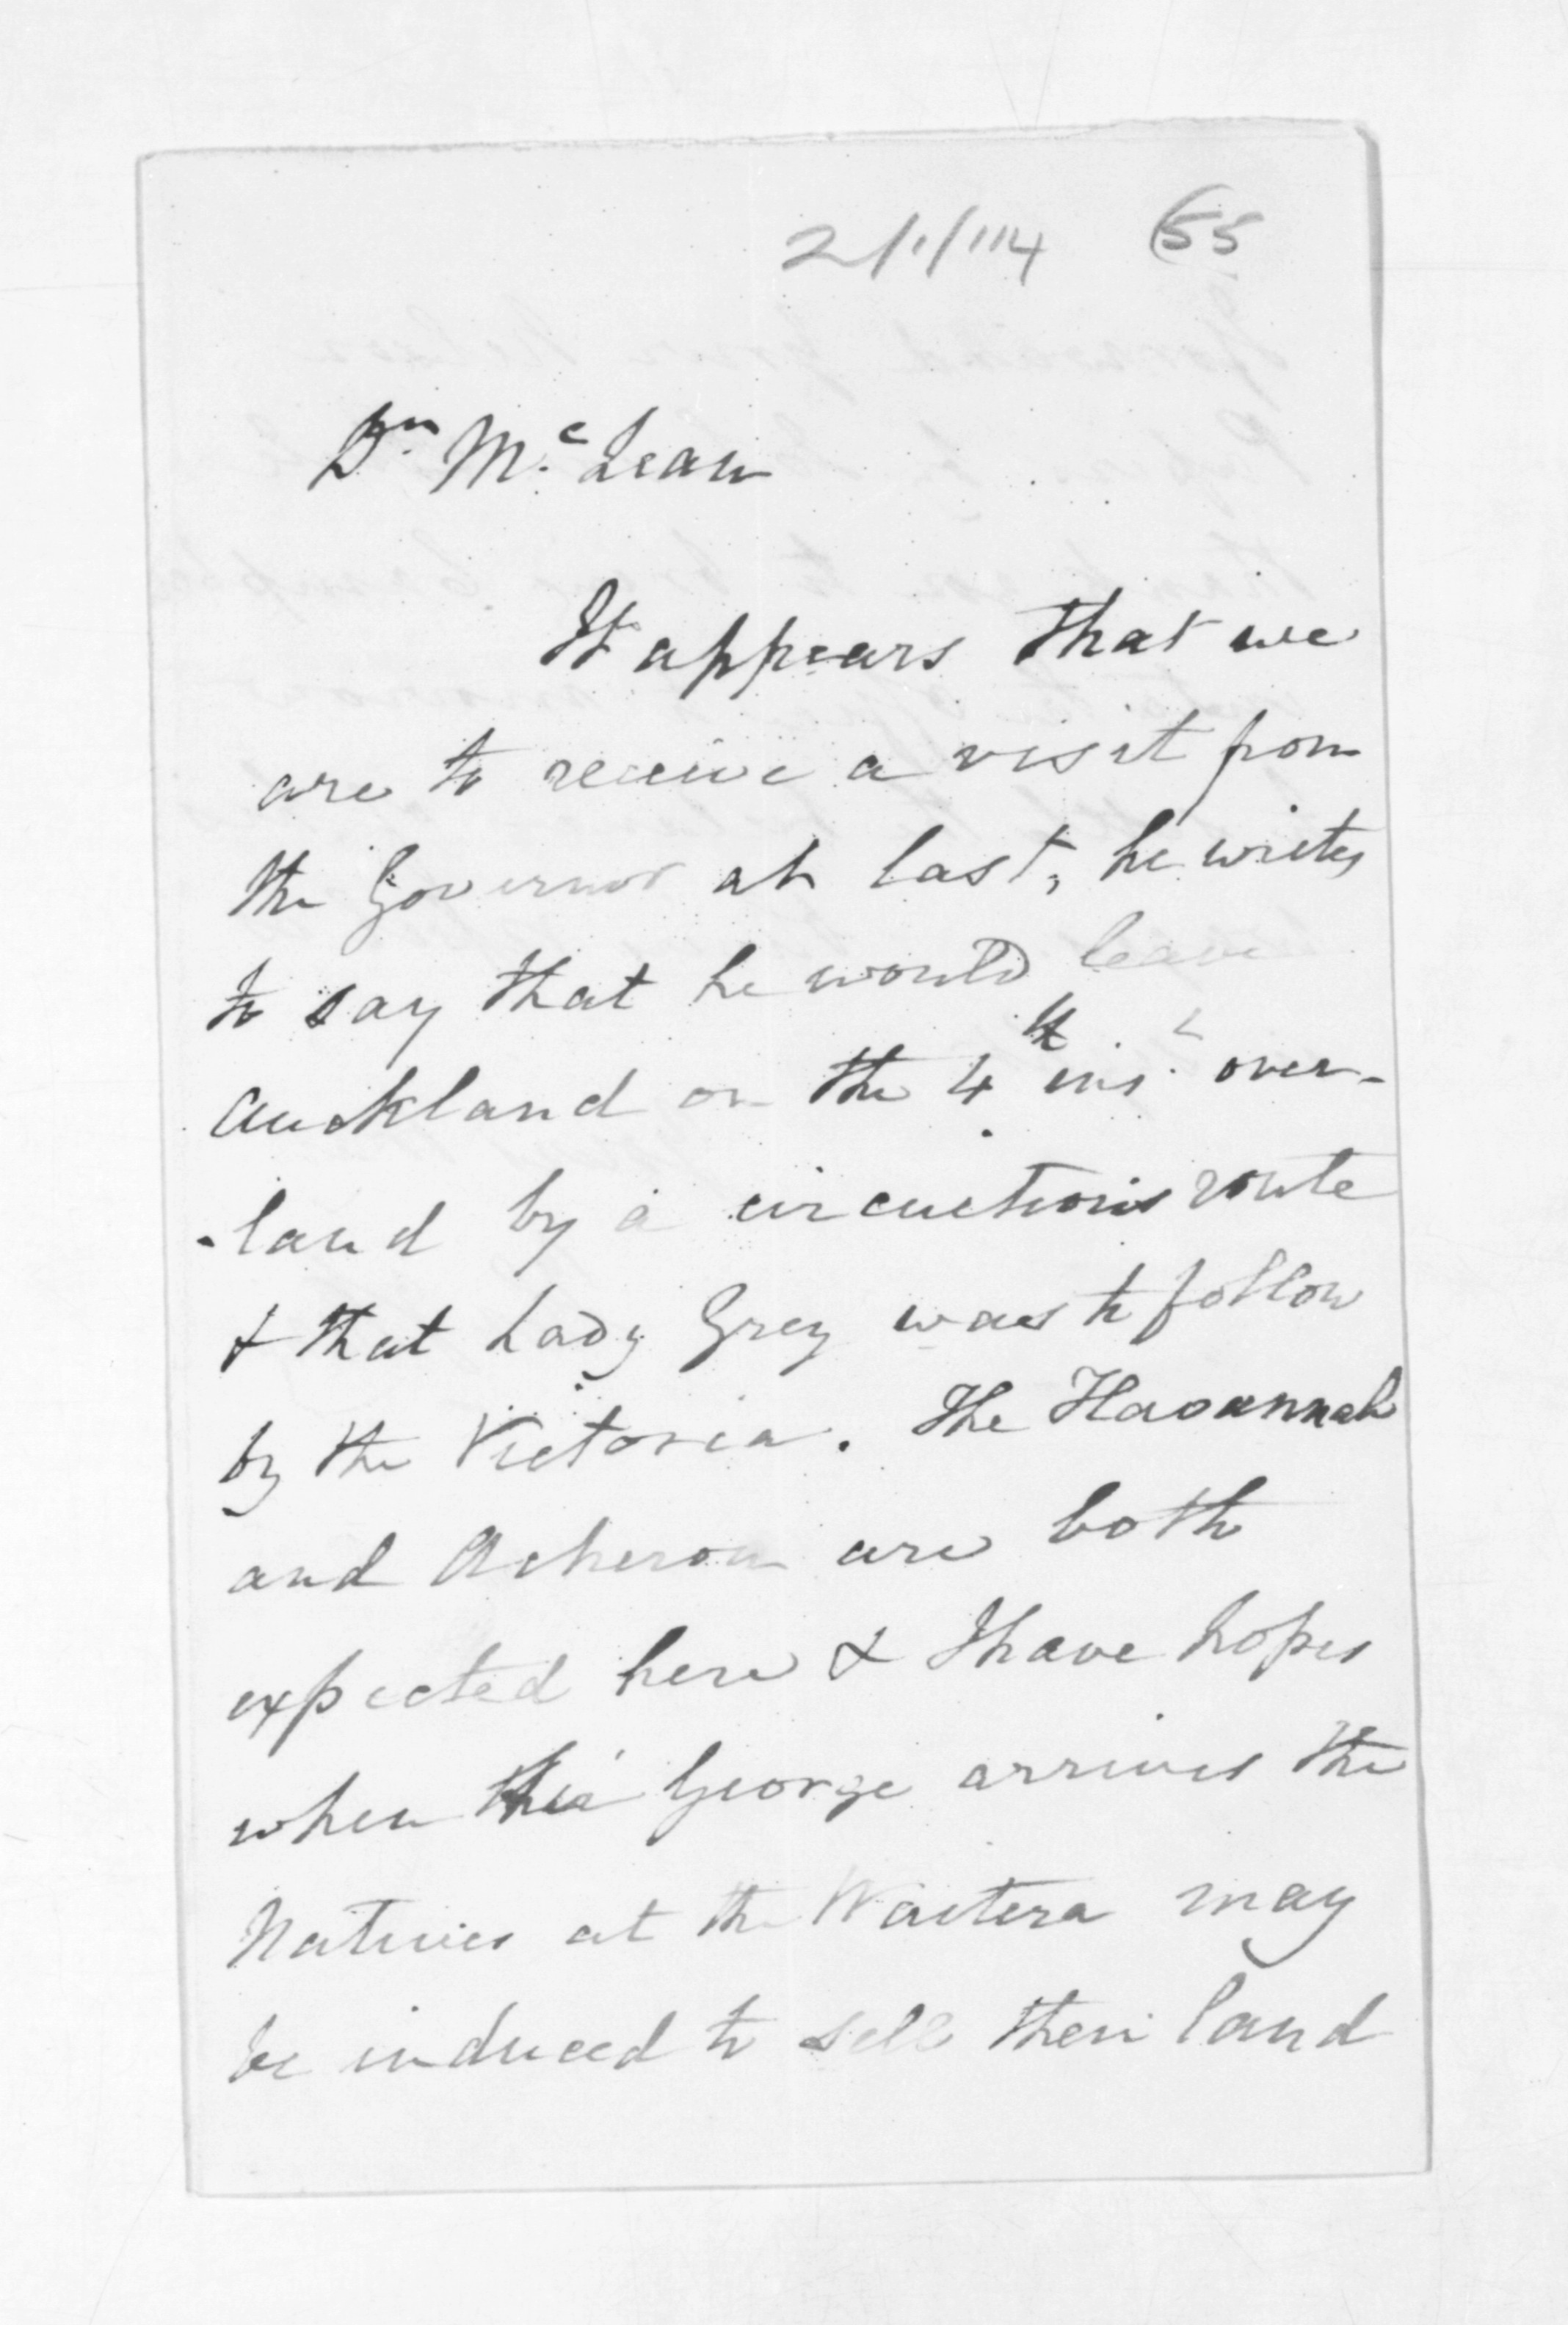 2/1/114 (55
Dr. McLean
It appears that we
are to receive a visit from
the Governor at last, he writes
to say that he would leave
Auckland on the 4th inst over-
-land by a circuitous route
& that Lady Grey was to follow
by the Victoria. The Havannah
and Acheron are both
expected here & I have hopes
when George arrives the
Natives at the Waitera may
be induced to sell their land